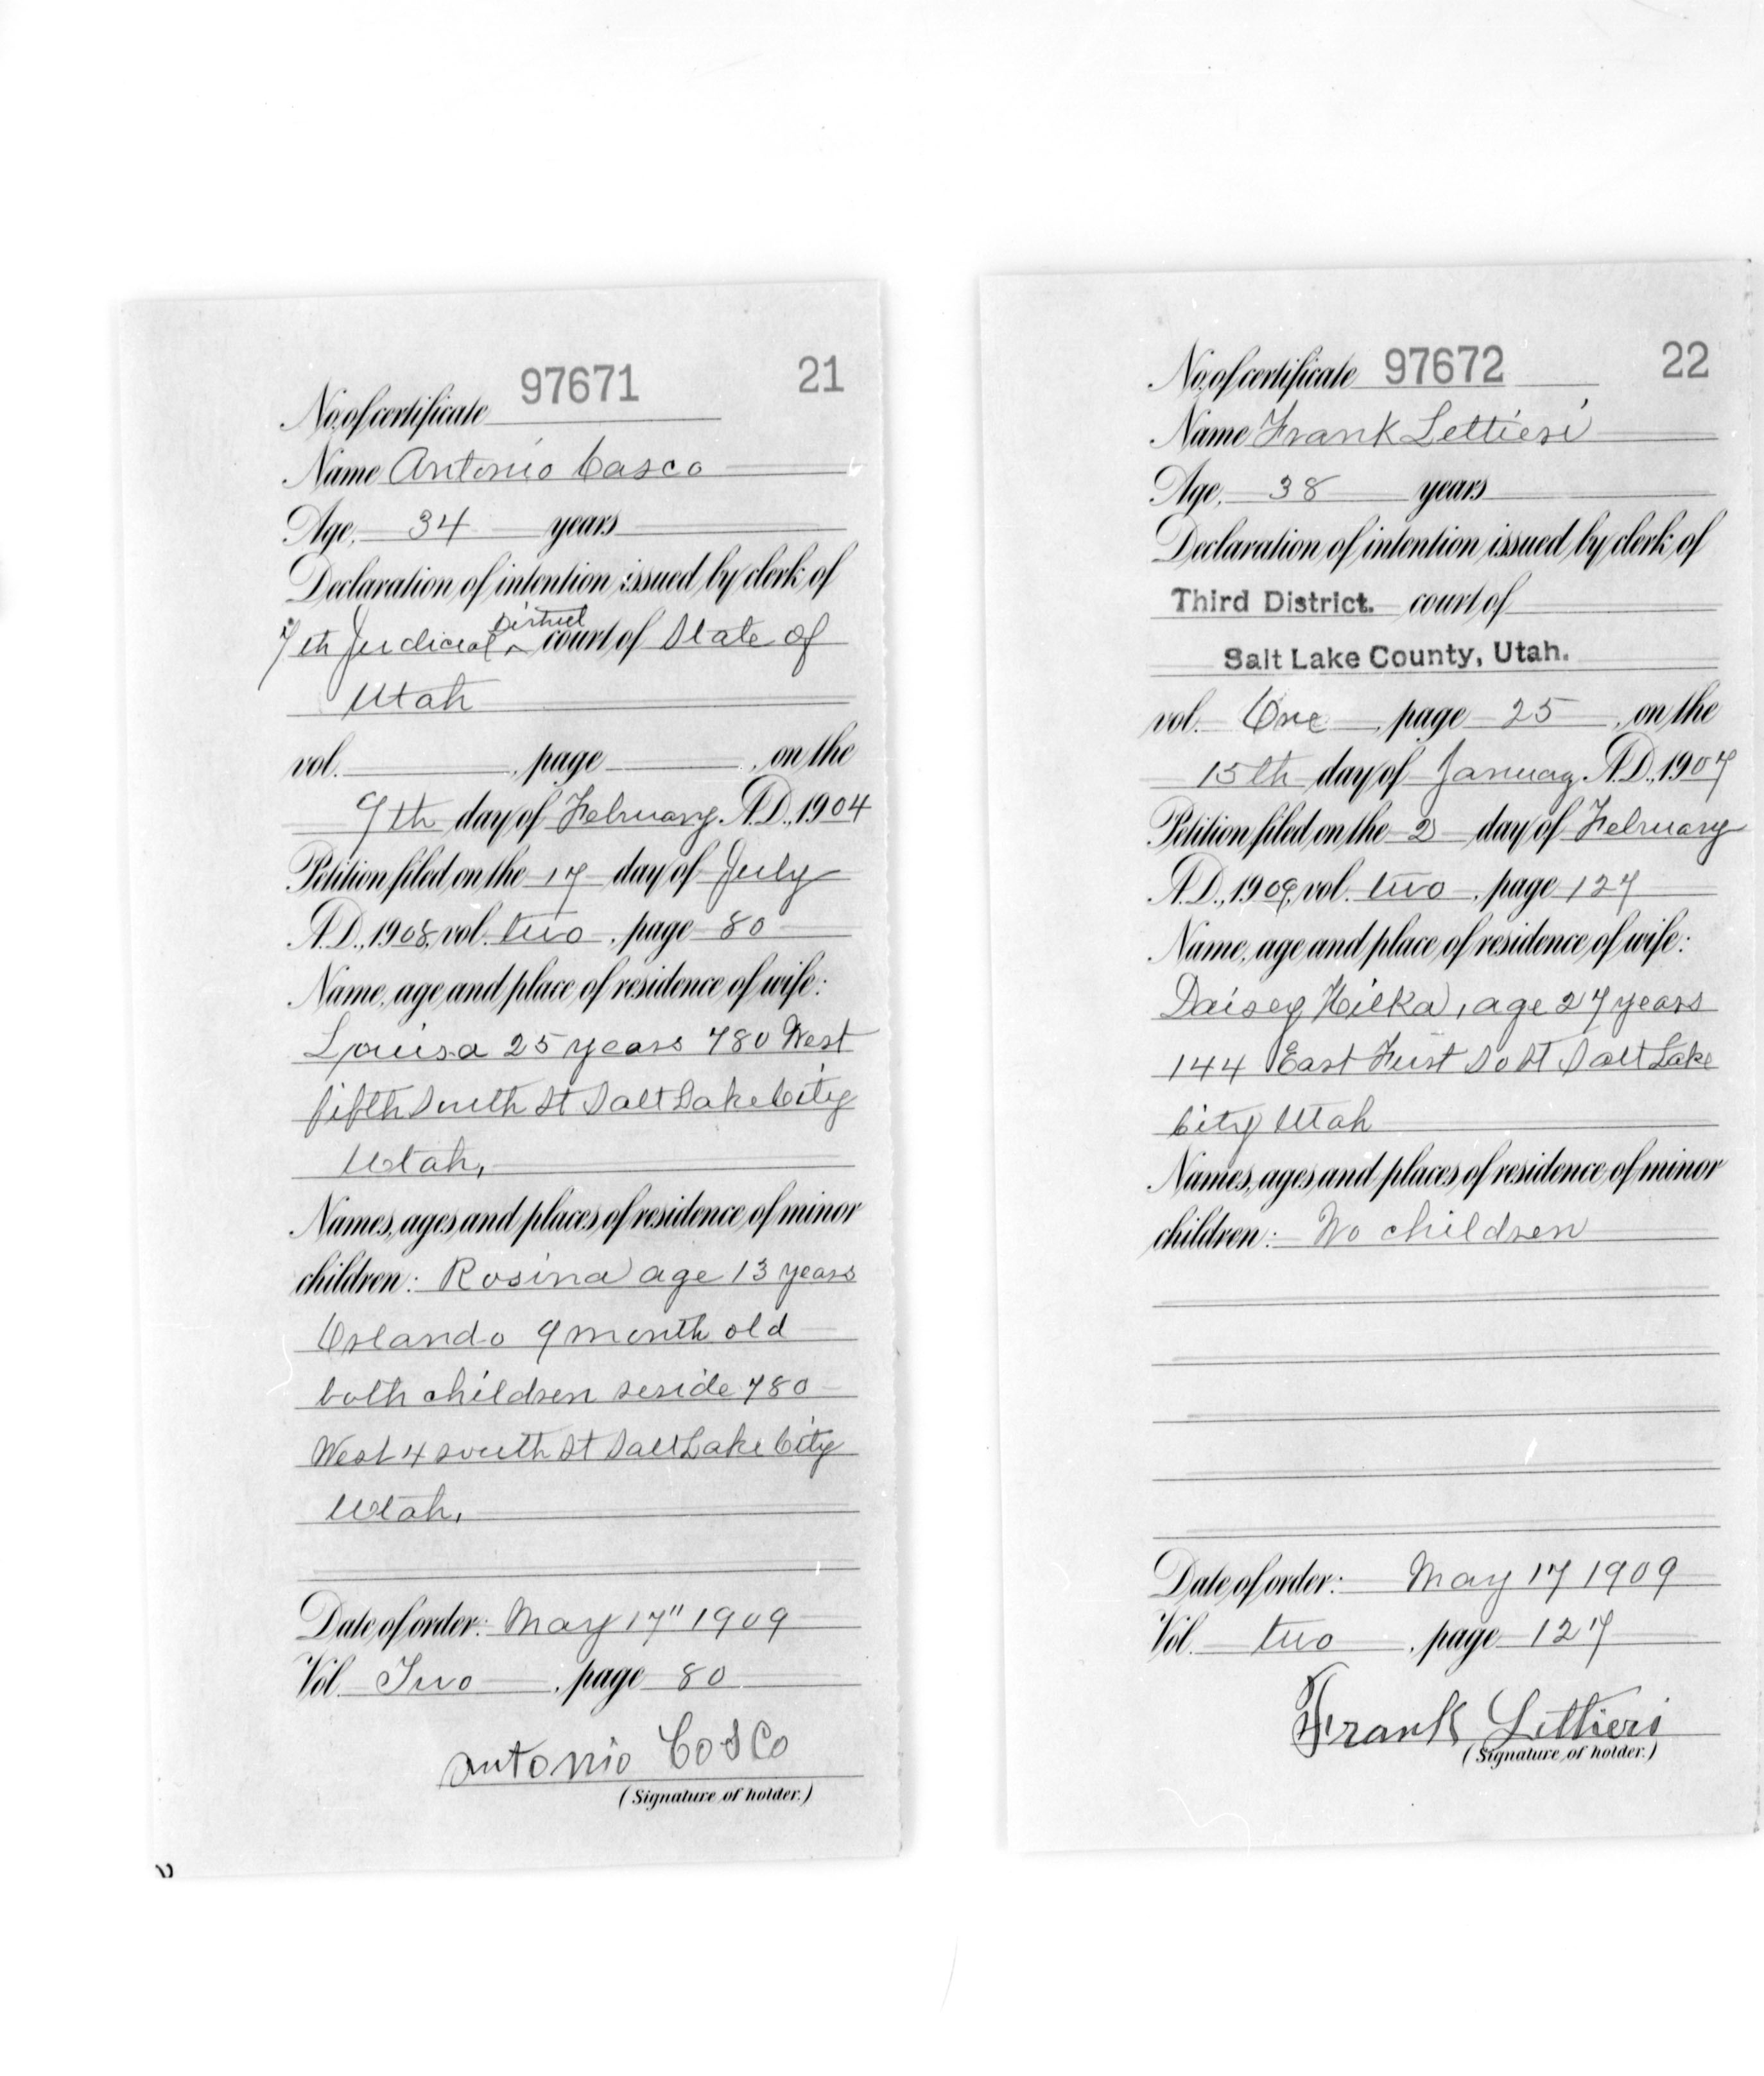 21
No. of certificate 97671
Name Antonio Casco
Age, 34 years
Declaration of intention issued by clerk of
7th Judicial District court of State of
Utah
vol. , page , on the
9th day of February A.D., 1904
Petition filed on the 17 day of July
A.D., 1908, vol. two, page 80
Name, age and place of residence of wife:
Louisa 25 years 780 West
fifth South St Salt Lake City
Utah,
Names, ages and places of residence of minor
children: Rosina age 13 years
Orlando 9 month old
both children reside 780
West 4 south St Salt Lake City
Utah,
Date of order: May 17" 1909
Vol. Two, page 80
Antonio Cosco
(Signature of holder.)
22
No. of certificate 97672
Name Frank Lettieri
Age, 38 years
Declaration of intention issued by clerk of
Third District. court of
Salt Lake County, Utah.
vol. One, page 25, on the
15th day of January A.D., 1907
Petition filed on the 2 day of February
A.D., 1909, vol. two, page 127
Name, age and place of residence of wife:
Daisey Hilka, age 27 years
144 East First So St Salt Lake
City Utah
Names, ages and places of residence of minor
children: No children
Date of order: May 17 1909
Vol. two, page 127
Frank Lettieri
(Signature of holder.)